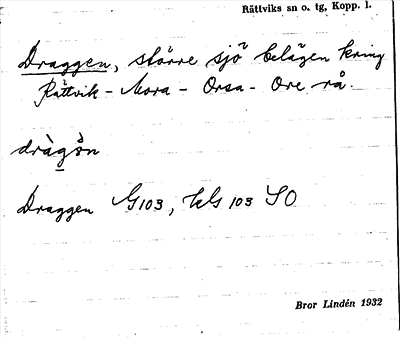 Rättviks sn o. tg, Kopp. l.
Draggen, större sjö belägen kring
Rättvik - Mora - Orsa - Ore rå.
dràgo̊n
Draggen G103, HG 103 SO
Bror Lindén 1932